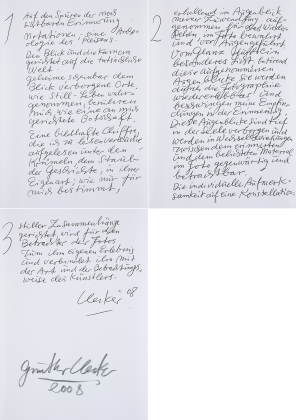 1
Auf den Spuren der
sichtbaren Erinnerung
Notationen, eine
ologie des Reisens
Den Blick und die Kamera
gerichtet auf die
Welt
geheime, scheinbar dem
Blick verborgene Orte,
wie Still-Leben wahr-
genommen, berühren
mich wie eine an mich
gerichtete Botschaft.
Eine bildhafte Chiffre,
die ich zu lesen
aufgelesen unter den
Krümeln dem Staub
der Geschichte, in ihrer
Eigenart, wie nur für
mich bestimmt,
2
erhellend im Augenblick
meiner auf-
genommen für das
Leben, im Foto bewahrt
und vor Augen geführt
Vom Glanz
besonderes Licht betont
diese aufgenommenen
Augenblicke. Sie werden
durch die Fotographie
wiederholbar und
beschwingen meine Empfin-
dungen in der Erinnerung
Diese Augenblicke sind tief
in der Seele verborgen und
werden im
zwischen dem erinnerten
und dem belichteten Material
im Foto gegenwärtig und
betrachtbar.
Die individuelle Aufmerk-
samkeit auf eine Konstellation
3
Zusammenhänge
gerichtet, wird für den
Betrachter des Fotos
zum ihm eigenen Erlebnis
und verbindet ihn mit
der Art und der Betrachtungs-
weise des Künstlers.
Uecker 08
Günther Uecker
2008